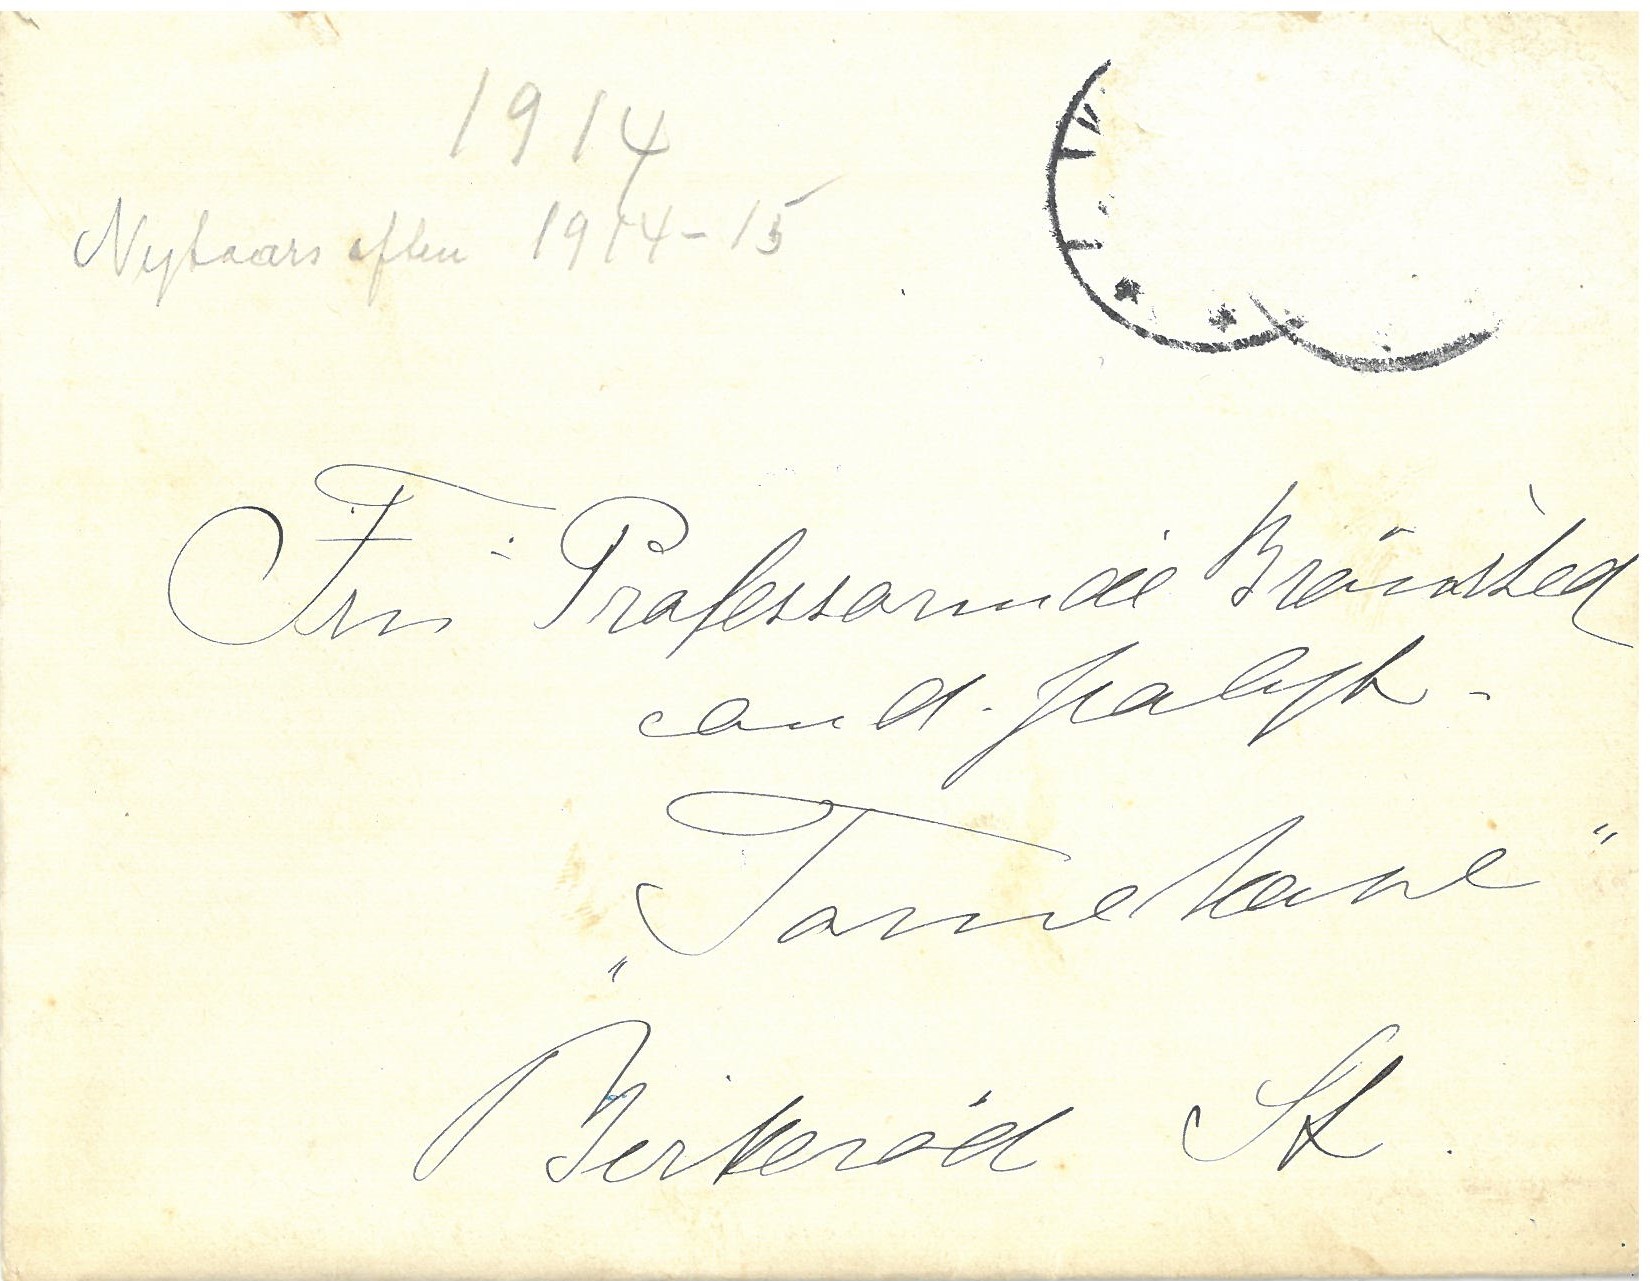 1914
Nytaarsaften 1914-15
Fru Professorinde Brönsted
cand. polyt.
„Tornehave"
Birkeröd St.